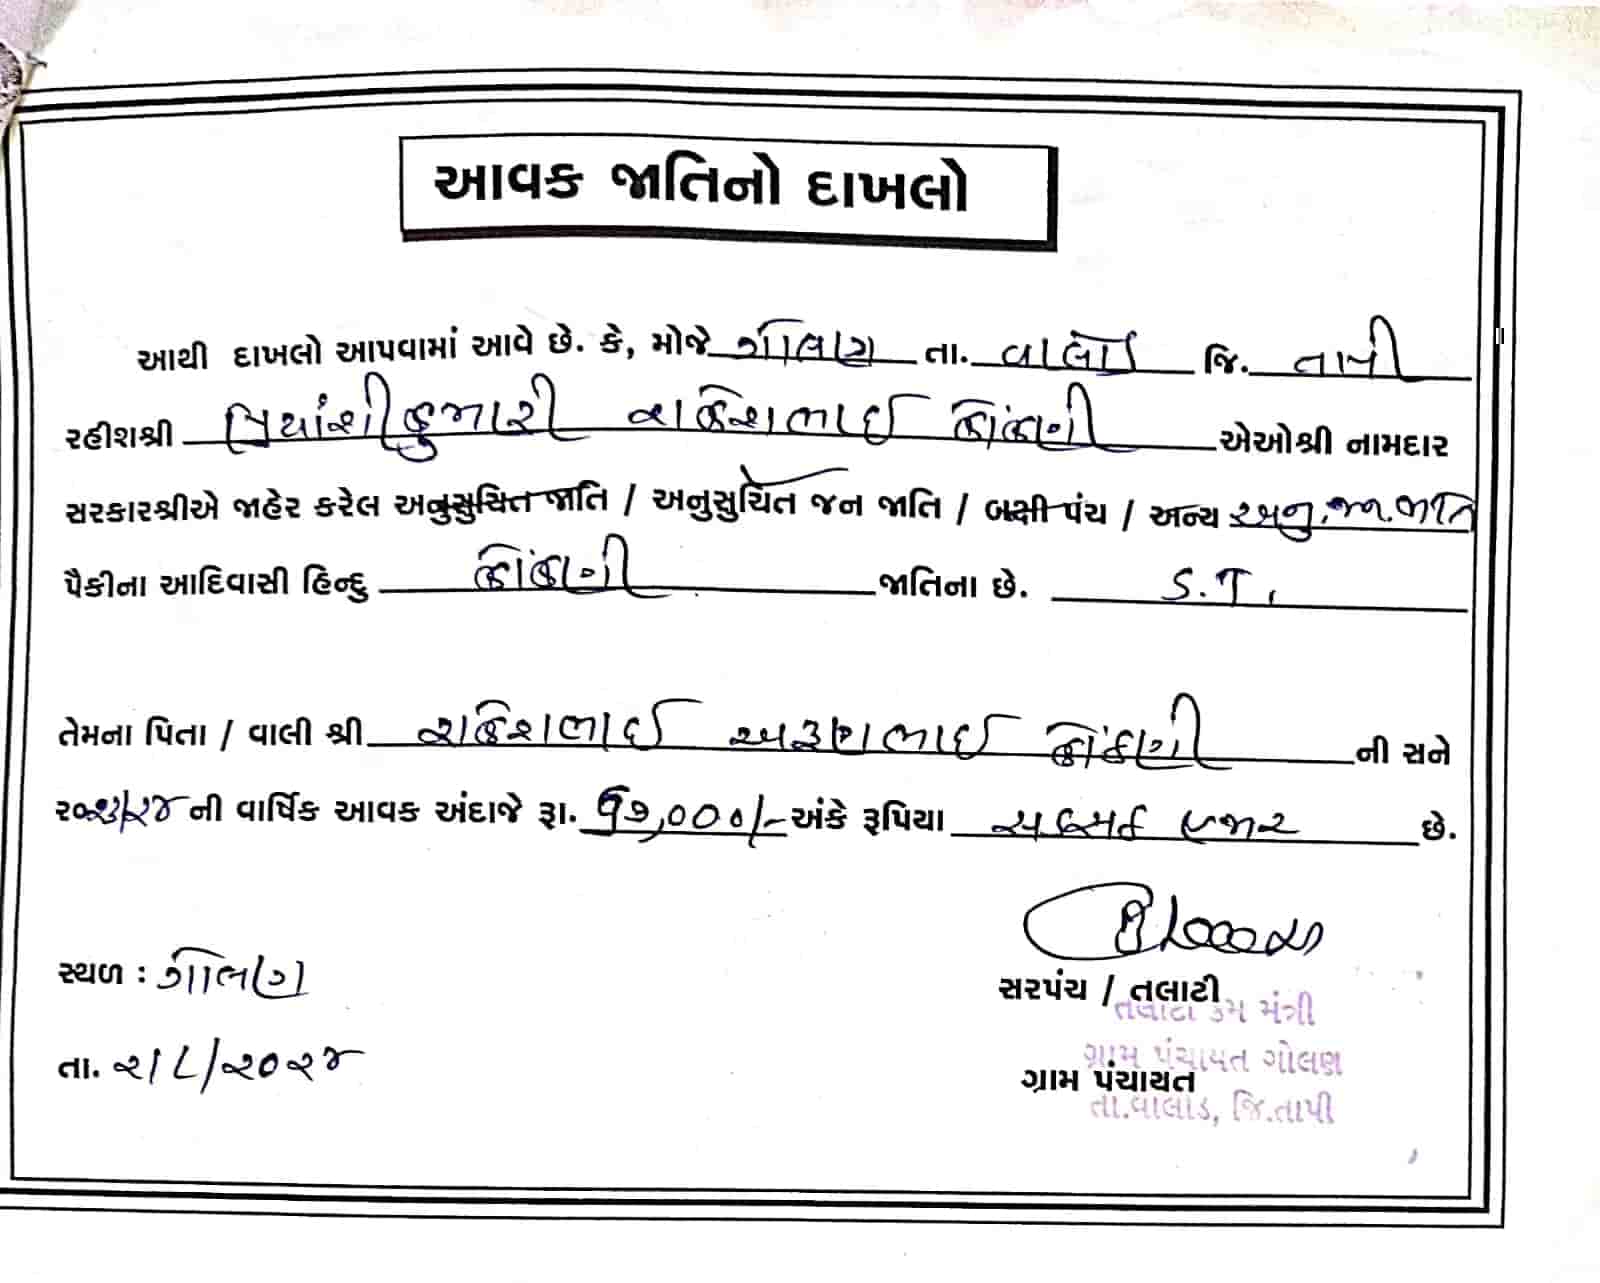 આવક જાતિનો દાખલો
આથી દાખલો આપવામાં આવે છે. કે, મોજે ગોલણ તા. વાલોડ જિ. તાપી
રહીશશ્રી પ્રિયાંશીકુમારી રાકેશભાઈ કોંકણી એઓશ્રી નામદાર
સરકારશ્રીએ જાહેર કરેલ અનુસુચિત જાતિ / અનુસુચિત જન જાતિ / બક્ષી પંચ / અન્ય અનુ.જન.જાતિ
પૈકીના આદિવાસી હિન્દુ કોંકણી જાતિના છે. S.T.
તેમના પિતા / વાલી શ્રી રાકેશભાઈ અરૂણભાઈ કોંકણી ની સને
૨૦૨૩/૨૪ ની વાર્ષિક આવક અંદાજે રૂા. ૬૭,૦૦૦/- અંકે રૂપિયા સડસઠ હજાર છે.
સ્થળ : ગોલણ
તા. ૨/૮/૨૦૨૪
સરપંચ / તલાટી
તલાટી કમ મંત્રી
ગ્રામ પંચાયત ગોલણ
ગ્રામ પંચાયત
તા.વાલોડ, જિ.તાપી